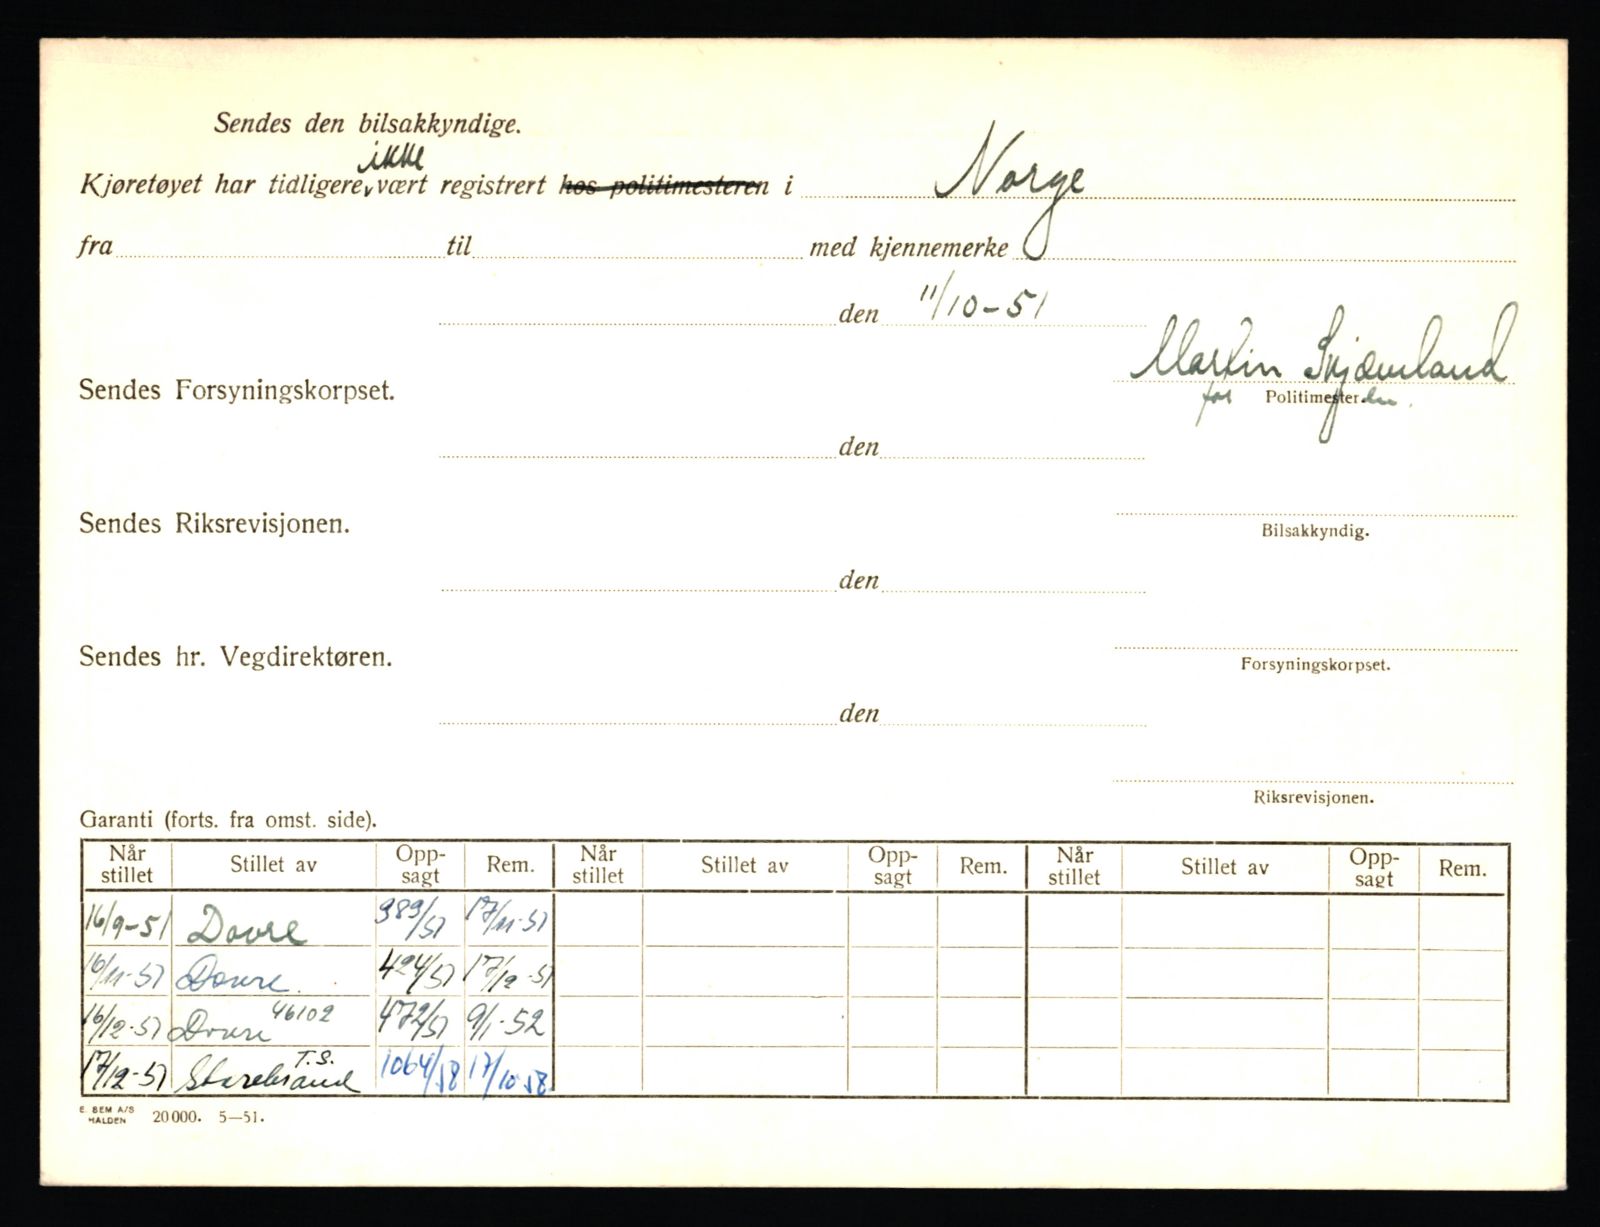 Sendes den bilsakkyndige.
ikke
Kjøretøyet har tidligere, vært registrert hos politimesteren i Norge
fra til med kjennemerke
den 11/10-51
Martin Skjæveland
Sendes Forsyningskorpset.
for Politimesteren.
den
Sendes Riksrevisjonen.
Bilsakkyndig.
den
Sendes hr. Vegdirektøren.
Forsyningskorpset.
den
Riksrevisjonen.
Garanti (forts. fra omst. side).
Når stillet Stillet av Opp-sagt Rem. Når stillet Stillet av Opp-sagt Rem. Når stillet Stillet av Opp-sagt Rem.
16/9-51 Dovre 389/51 17/11-51
16/11-51 Dovre. 424/51 17/12-51
16/12-51 Dovre 46102 472/51 9/1-52
17/12-51 Storebrand T.S. 1064/58 17/10 58
E. SEM A/S
HALDEN 20000. 5—51.